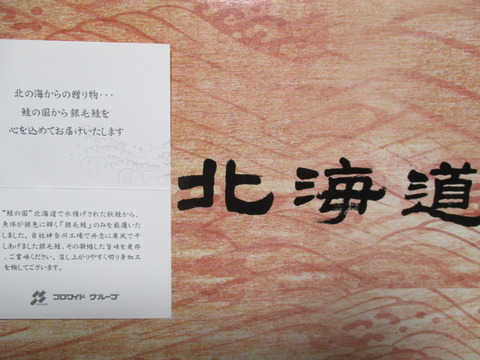 北の海からの贈り物・・・
鮭の国から銀毛鮭を
心を込めてお届けいたします
"鮭の国"北海道で水揚げされた秋鮭から、
魚体が銀色に輝く「銀毛鮭」のみを厳選いた
しました。当社神奈川工場で丹念に寒風で干
しあげました銀毛鮭、その凝縮した旨味を是非
、ご賞味ください。召し上がりやすく切り身加工
を施してございます。
コロワイド グループ
北海道